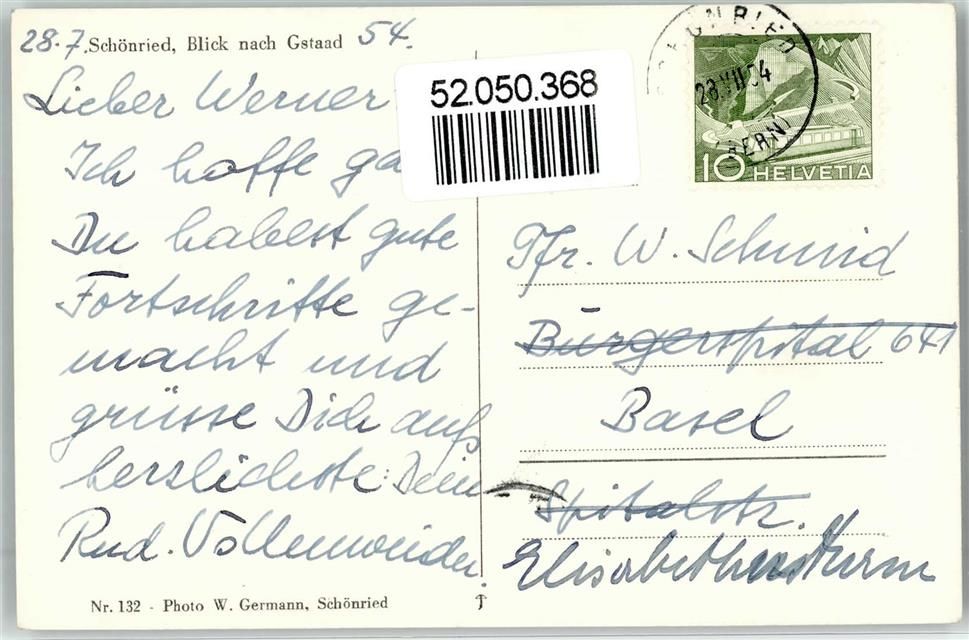 28.7. Schönried, Blick nach Gstaad 54.
Lieber Werner
Ich hoffe
Du habest gute
Fortschritte ge-
macht und
grüsse Dich aufs
herzlichste: Dein
Rud. Vollenweider.
Nr. 132 - Photo W. Germann, Schönried
52.050.368
28.VII.54
(BERN)
10 HELVETIA
Pfr. W. Schmid
Bürgerspital 641
Basel
Spitalstr.
Elisabethensturm